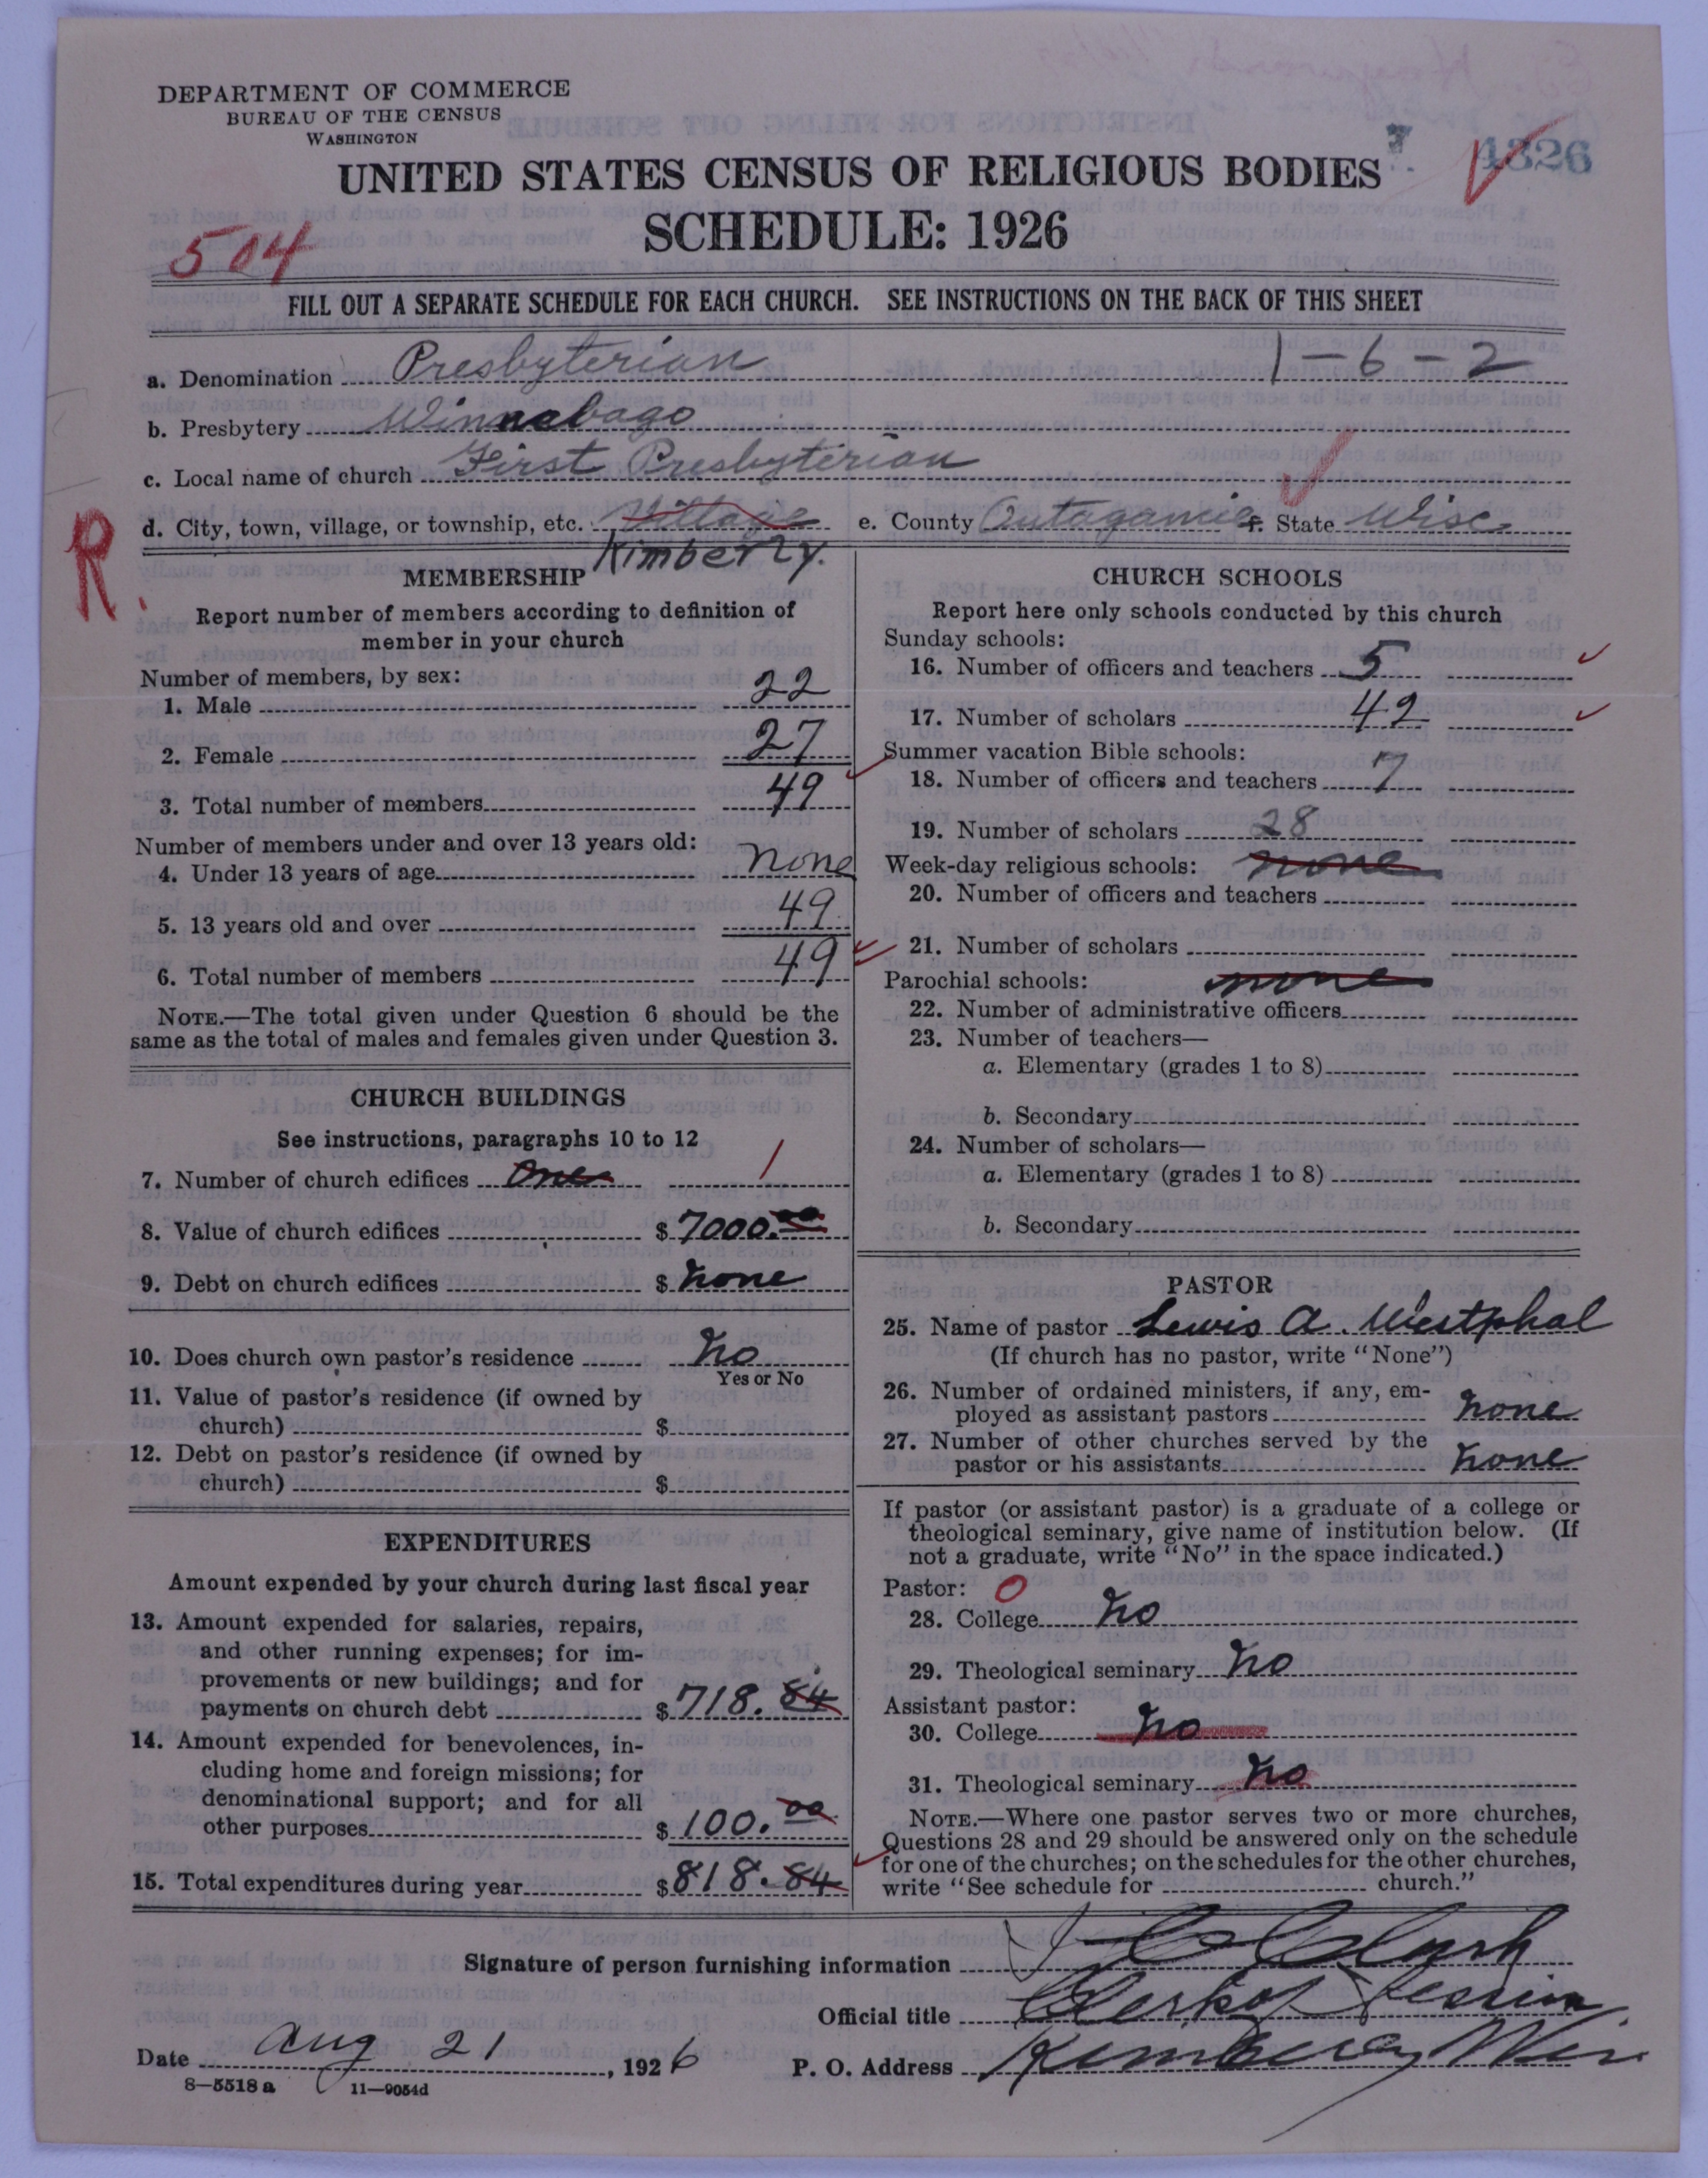 DEPARTMENT OF COMMERCE
BUREAU OF THE CENSUS
WASHINGTON
4326
UNITED STATES CENSUS OF RELIGIOUS BODIES
SCHEDULE: 1926
504
FILL OUT A SEPARATE SCHEDULE FOR EACH CHURCH. SEE INSTRUCTIONS ON THE BACK OF THIS SHEET
a. Denomination Presbyterian 1-6-2
b. Presbytery Winnebago
c. Local name of church First Presbyterian
d. City, town, village, or township, etc. Village e. County Outagamie f. State Wisc.
Kimberly.
R.
MEMBERSHIP
Report number of members according to definition of
member in your church
Number of members, by sex:
1. Male 22
2. Female 27
3. Total number of members 49
Number of members under and over 13 years old:
4. Under 13 years of age none
5. 13 years old and over 49
6. Total number of members 49
NOTE.—The total given under Question 6 should be the
same as the total of males and females given under Question 3.
CHURCH BUILDINGS
See instructions, paragraphs 10 to 12
7. Number of church edifices one 1
8. Value of church edifices $ 7000.00
9. Debt on church edifices $ none
10. Does church own pastor's residence no
Yes or No
11. Value of pastor's residence (if owned by
church) $
12. Debt on pastor's residence (if owned by
church) $
EXPENDITURES
Amount expended by your church during last fiscal year
13. Amount expended for salaries, repairs,
and other running expenses; for im-
provements or new buildings; and for
payments on church debt $ 718.84
14. Amount expended for benevolences, in-
cluding home and foreign missions; for
denominational support; and for all
other purposes $ 100.00
15. Total expenditures during year $ 818.84
CHURCH SCHOOLS
Report here only schools conducted by this church
Sunday schools:
16. Number of officers and teachers 5
17. Number of scholars 42
Summer vacation Bible schools:
18. Number of officers and teachers 7
19. Number of scholars 28
Week-day religious schools: none
20. Number of officers and teachers
21. Number of scholars
Parochial schools: none
22. Number of administrative officers
23. Number of teachers—
a. Elementary (grades 1 to 8)
b. Secondary
24. Number of scholars—
a. Elementary (grades 1 to 8)
b. Secondary
PASTOR
25. Name of pastor Lewis A. Westphal
(If church has no pastor, write "None")
26. Number of ordained ministers, if any, em-
ployed as assistant pastors none
27. Number of other churches served by the
pastor or his assistants none
If pastor (or assistant pastor) is a graduate of a college or
theological seminary, give name of institution below. (If
not a graduate, write "No" in the space indicated.)
Pastor: O
28. College no
29. Theological seminary no
Assistant pastor:
30. College no
31. Theological seminary no
NOTE.—Where one pastor serves two or more churches,
Questions 28 and 29 should be answered only on the schedule
for one of the churches; on the schedules for the other churches,
write "See schedule for church."
Signature of person furnishing information
Official title Clerk of Session
Date Aug 21, 1926 P. O. Address Kimberly Wis.
8—5518 a 11—9054d